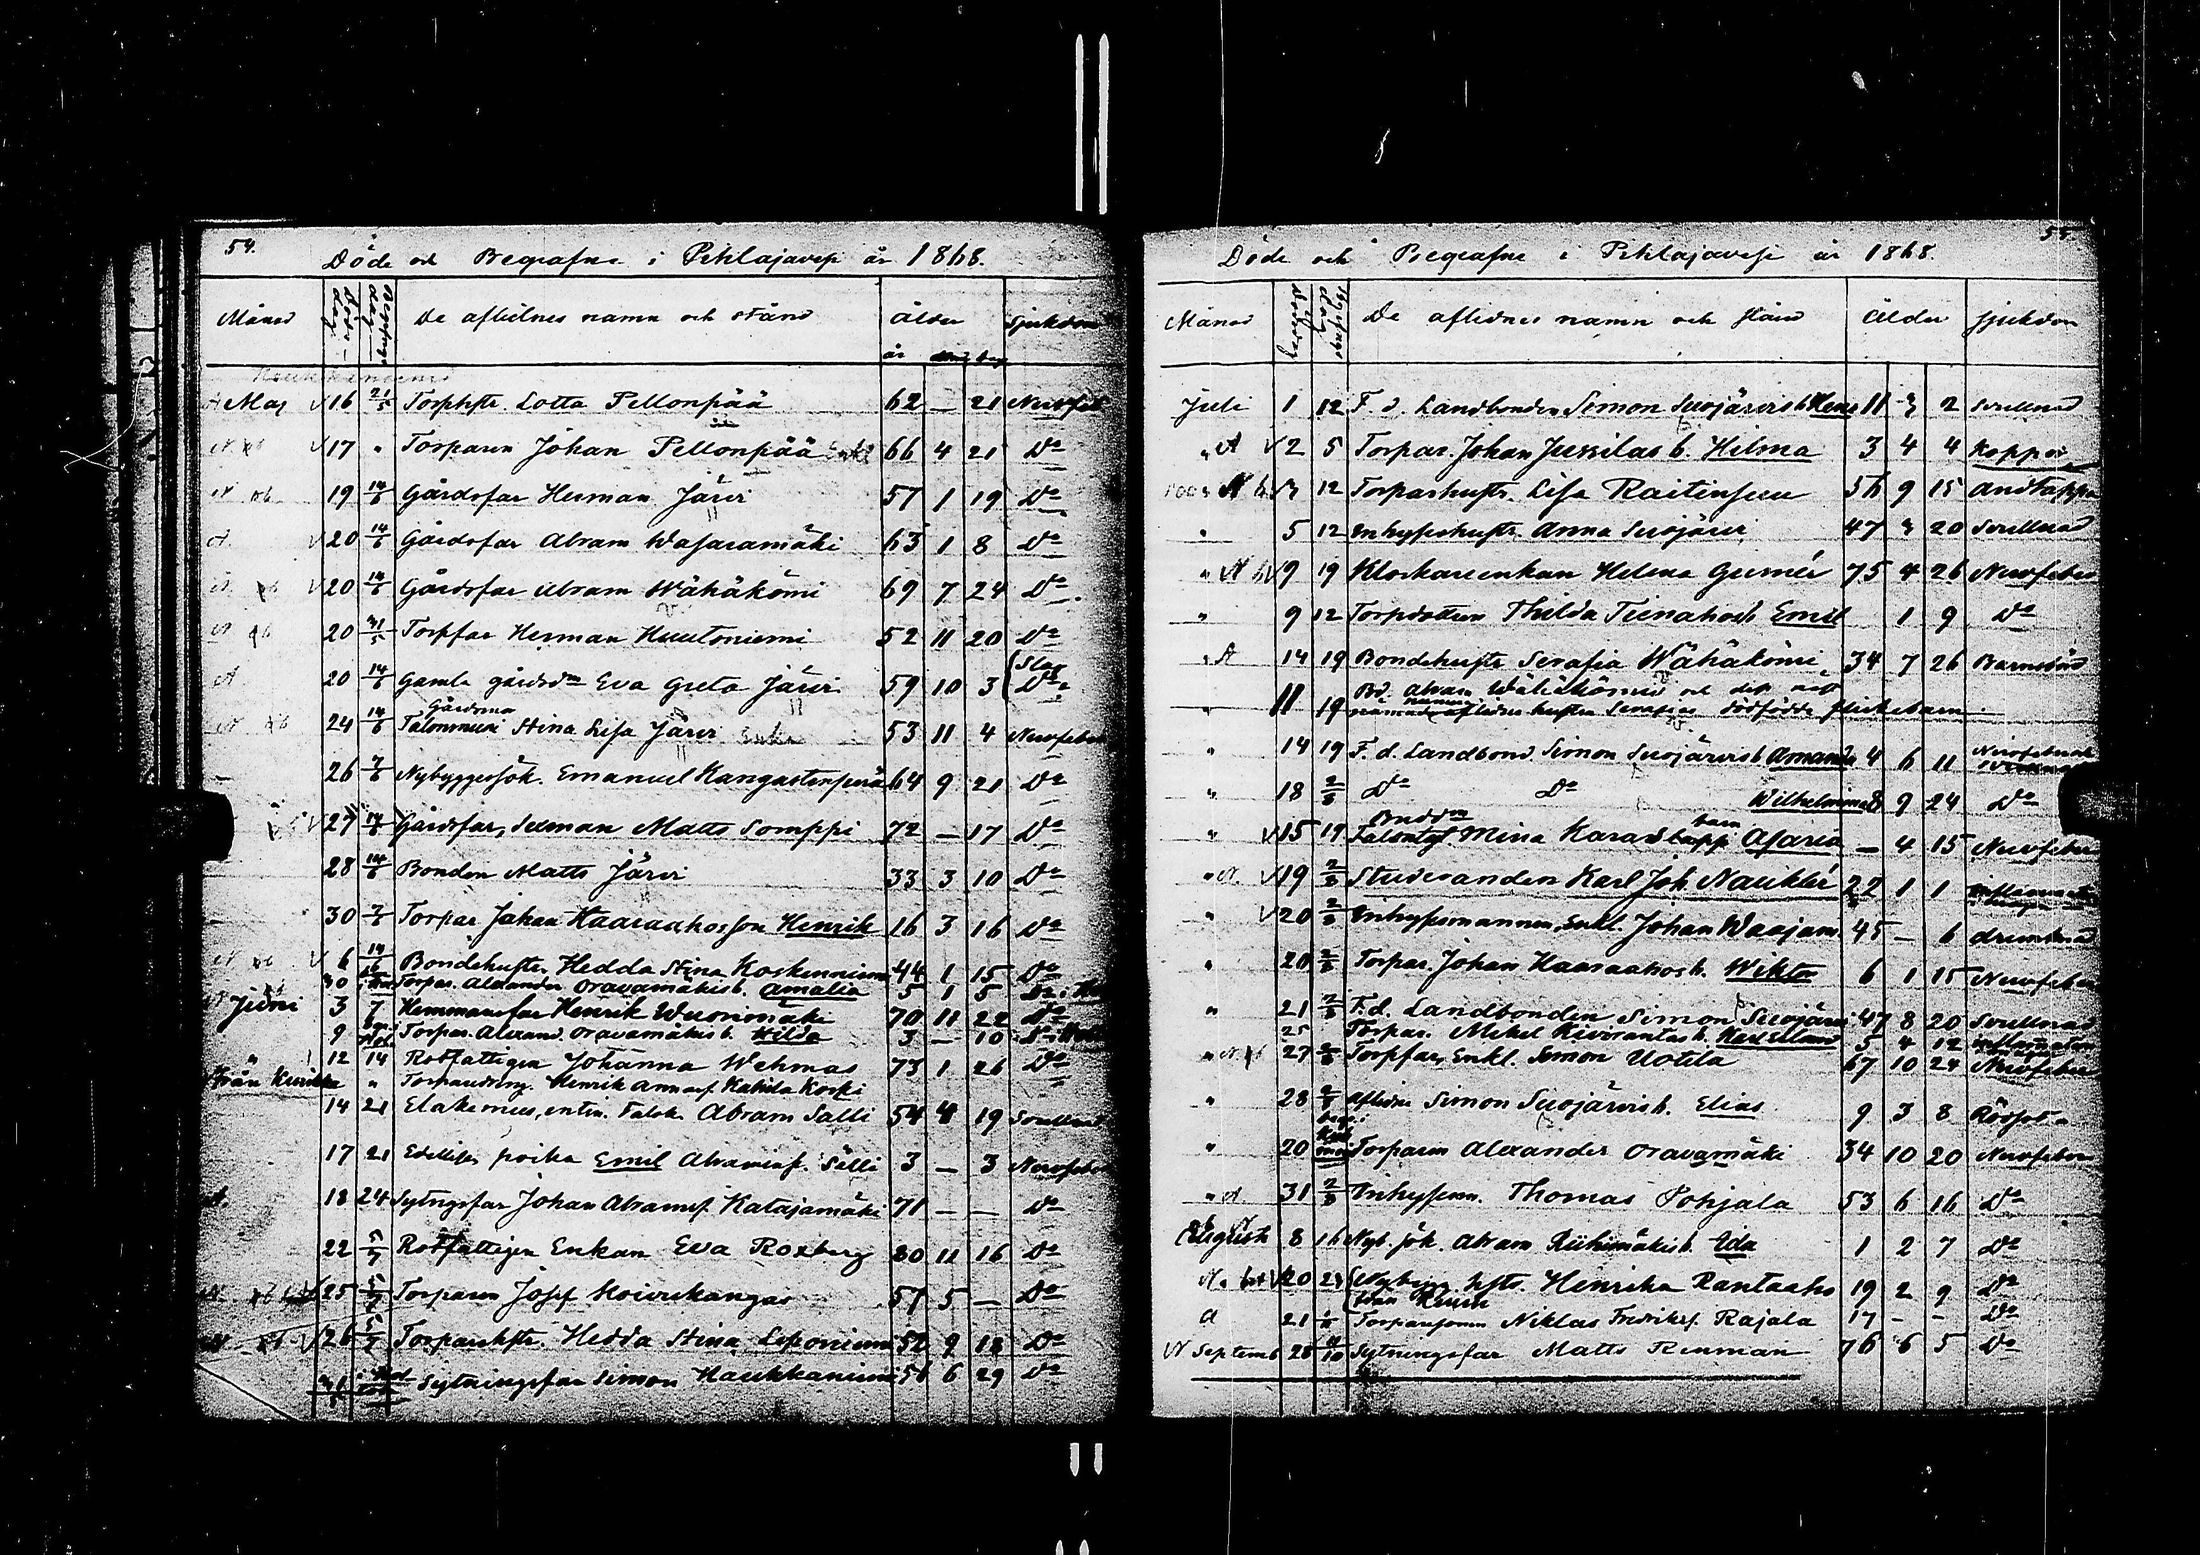 54.
Döde och Begrafne i Pehlajavesi år 1868.
Månad Döds-dag Begrafnings dag De aflidnes namn och stånd ålder Sjukdom
år
Maj 16 21/5 Torphstr. Lotta Pellonpää 62 — 21 Nervfeb
17 " Torparen Johan Pellonpää Enkl 66 4 21 Do
19 14/6 Gårdsfar Herman Järvi 57 1 19 Do
A. 20 14/6 Gårdsfar Abram Wasaramäki 63 1 8 Do
20 14/6 Gårdsfar Abram Wähäkömi 69 7 24 Do
20 31/5 Torpfar Herman Huutoniemi 52 11 20 Do
A 20 14/6 Gamla gårdsdn Eva Greta Järvi 59 10 3 Slag Do
24 14/6 Gårdsmo Stina Lisa Järvi Enka 53 11 4 Nervfeber
26 7/6 Nybyggersök. Emanuel Kangastenperä 64 9 21 Do
27 14/6 Gårdsfar, Selman Matts Somppi 72 — 17 Do
28 14/6 Bonden Matts Järvi 33 3 10 Do
30 7/6 Torpar Johan Haaraahos son Henrik 16 3 16 Do
6 14/6 Bondehustr. Hedda Stina Koskenniemi 44 1 15 Do
30 Torpar. Alexander Oravamäkis b. Amalia 5 1 5 Do
Juni 3 7 Hemmansfar Henrik Wuorimäki 70 11 22 Do
9 Torpar. Alexand. Oravamäkis b. Hilda 3 — 10 Do
" 12 14 Rotfattigen Johanna Wehmas 73 1 26 Do
från Kurikka " Torparedreng. Henrik Annasf Kabila Koski
14 21 Elakemies, entin. Talok. Abram Salli 54 4 19 Svullnad
17 21 Edellisen poika Emil Abramsf. Salli 3 — 3 Nervfeber
A. 18 24 Sytngsfar Johan Abramsf. Katajamäki 71 — — Do
22 5/7 Rotfattigen Enkan Eva Roxberg 80 11 16 Do
25 5/7 Torparen Josef Koivukangas 57 5 — Do
26 5/7 Torparehstr. Hedda Stina Leponiemi 52 9 18 Do
Sytningsfar Simon Haukkaniemi 56 6 29 Do
55
Döde och Begrafne i Pehlajavesi år 1868.
Månad Dödsdag Begrafnings dag De aflidnes namn och stånd Ålder Sjukdom
Juli 1 12 F. d. Landbonden Simon Suojärvis b. 11 3 2 Svullnad
" A 2 5 Torpar. Johan Jussilas b. Hilma 3 4 4 Koppor
" 3 12 Torparhustr. Lisa Raitinsuu 56 9 15 Andtäppa
" 5 12 Inhyseshustr. Anna Suojärvi 47 3 20 Svullnad
" 9 19 Klockareenkan Helena Gumér 75 4 26 Nervfeber
" 9 12 Torpdottren Thilda Tienahos b. Emil 1 9 Do
" A 14 19 Bondehustr Serafia Wähäkömi 34 7 26 Barnsbörd
" 11 19 Bd. Abram Wähäkömis och dess näst
nämnde aflidne hustru Serafias dödfödda flickebarn
" 14 19 F. d. Landbond Simon Suojärvis b. Amanda 4 6 11
" 18 2/8 Do Do Wilhelmina 8 9 24 Do
" 15 19 Mina Karastupp barn Asaria — 4 15 Nervfeber
" A. 19 2/8 Studeranden Karl Joh. Naukler 22 1 1
" 20 2/8 Inhysesmannen, Enkl. Johan Waajam. 45 — 6 drunknad
" 20 2/8 Torpar. Johan Haaraahos b. Wiktor 6 1 15 Nervfeber
" 21 2/8 F.d. Landbonden Simon Suojärvi 47 8 20 Svullnad
25 Torpar. Mikel Kivirantas b. 5 4 12
" 27 2/8 Torpfar, Enkl. Simon Uotila 67 10 24 Nervfeber
" 28 2/8 aflidne Simon Suojärvis b. Elias 9 3 8 Rödsot
" 20 Torparen Alexander Oravamäki 34 10 20 Nervfeber
" A. 31 2/8 Inhysesm. Thomas Pohjala 53 6 16 Do
Augusti 8 16 Nyb. sök. Abram Riihimäkis b. Ida 1 2 7 Do
20 23 Nybygg. hstr. Henrika Rantaaho 19 2 9 Do
A 21 Torparsonen Niklas Fredriksf. Rajala 17 - - Do
Septemb 28 Sytningsfar Matts Renman 76 6 5 Do